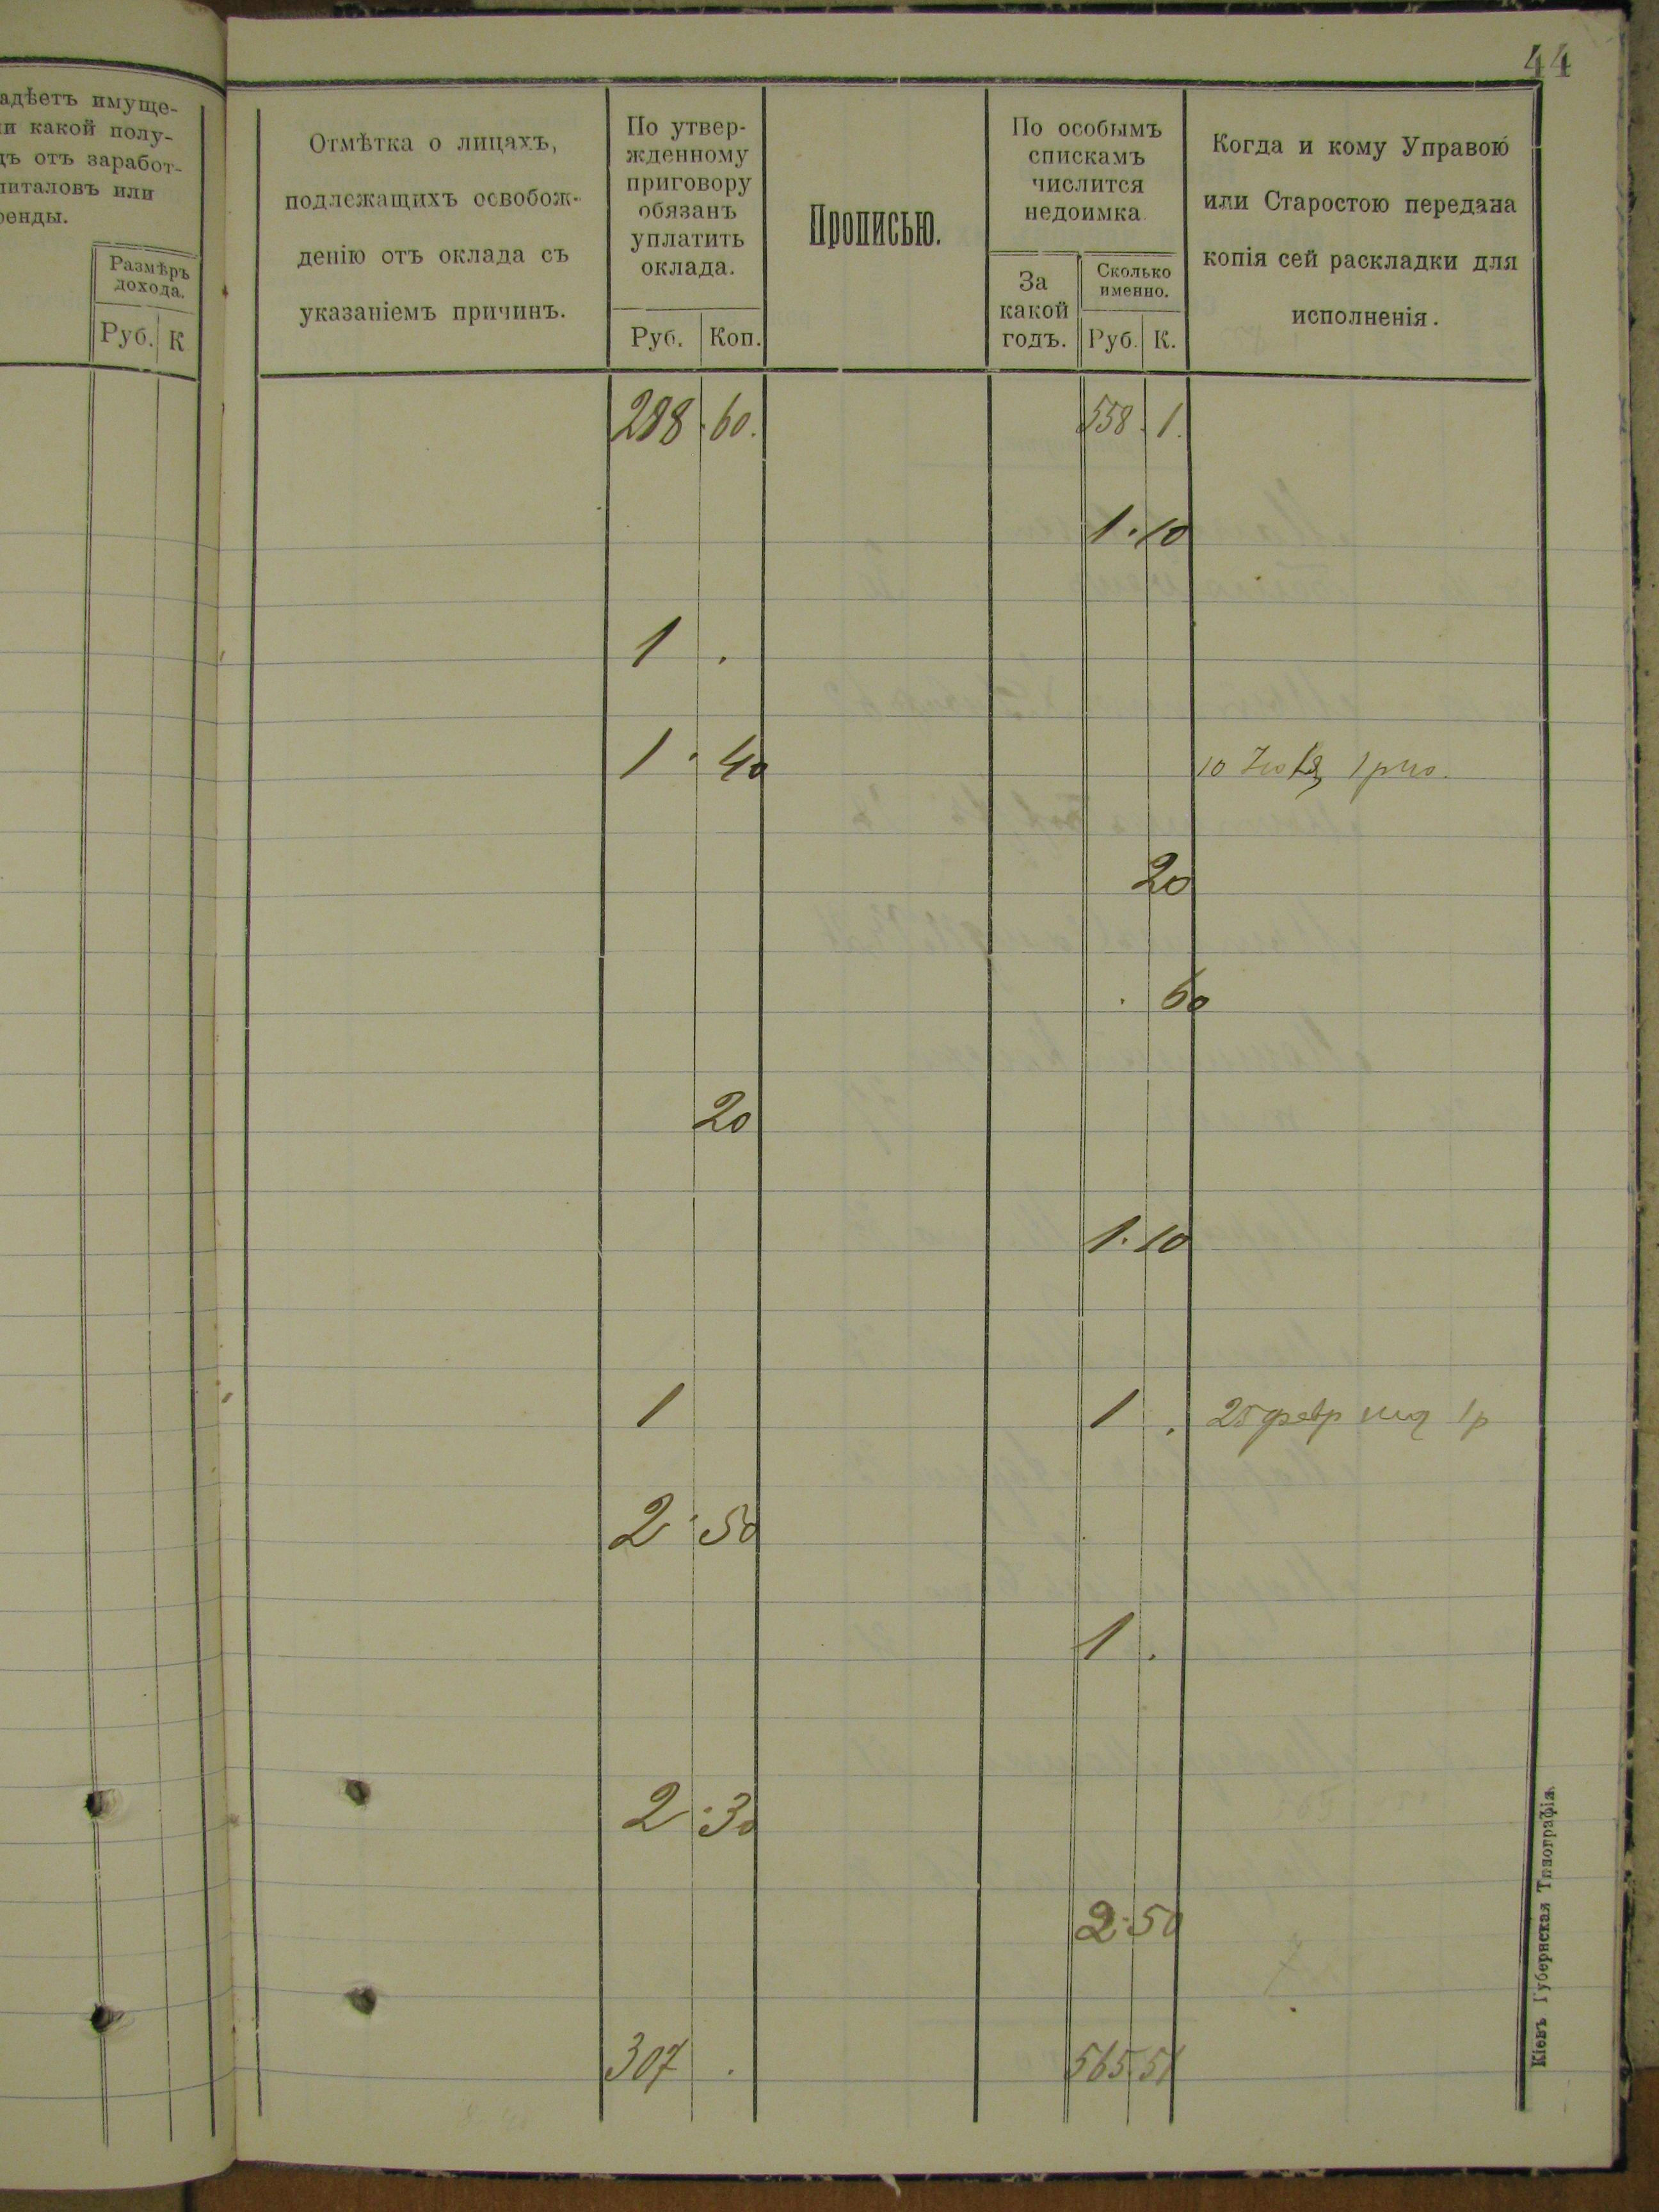 44
адѣетъ имуще-
и какой полу-
ъ отъ заработ-
питаловъ или
ренды.
Размѣръ
дохода.
Руб. К
Отмѣтка о лицахъ,
подлежащихъ освобож-
денію отъ оклада съ
указаніемъ причинъ.
По утвер-
жденному
приговору
обязанъ
уплатить
оклада.
Руб. Коп.
Прописью.
По особымъ
спискамъ
числится
недоимка.
За
какой
годъ.
Сколько
именно.
Руб. К.
Когда и кому Управою
или Старостою передана
копія сей раскладки для
исполненія.
60. 558. 1.
1. 10
1 .
1. 40 10 1
20
. 60
20
1. 10
1 1 . 25 февр 1р
2. 50
1 .
2. 30
2. 50
307 . 565. 51
Кіевъ Губернская Типографія.